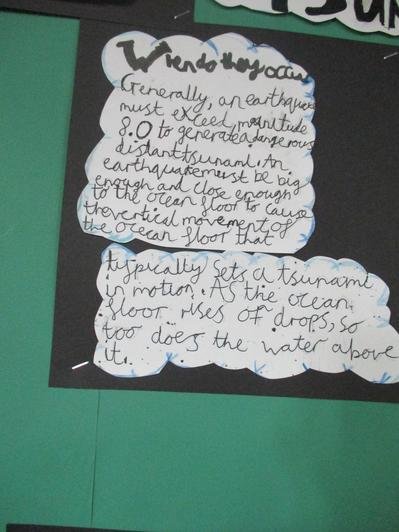 TSUN
When do they occur
Generally, an earthquake
must exceed magnitude
8.0 to generate a dangerous
distant tsunami. An
earthquake must be big
enough and close enough
to the ocean floor to cause
the vertical movement of
the ocean floor that
typically sets a tsunami
in motion. As the ocean
floor rises of drops, so
too does the water above
it.